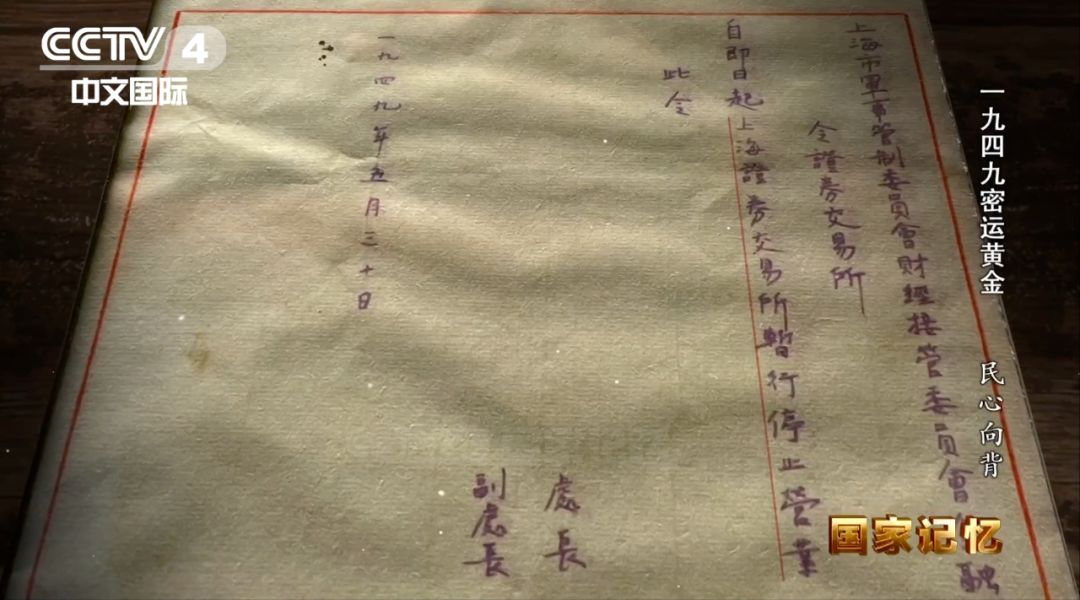 CCTV 4
中文国际
上海市軍事管制委員會財經接管委員會
融
令證券交易所
自即日起上海證券交易所暫行停止營業
此令
處長
副處長
一九四九年五月三十日
一九四九密运黄金
民心向背
国家记忆